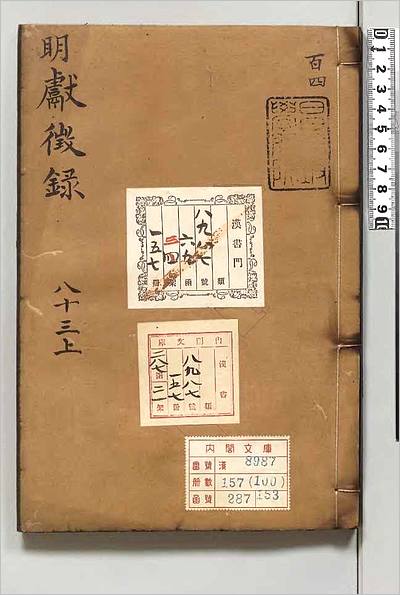 明獻徵錄
八十三上
百四
漢書門
八九八七
六九
三四
一五七
類
號
函
架
冊
內閣文庫
漢書
八九八七
一五七
二八七
二一
類
號
冊
函
架
內閣文庫
番號 漢 8987
冊數 157(100)
函號 287 153
0 1 2 3 4 5 6 7 8 9 10